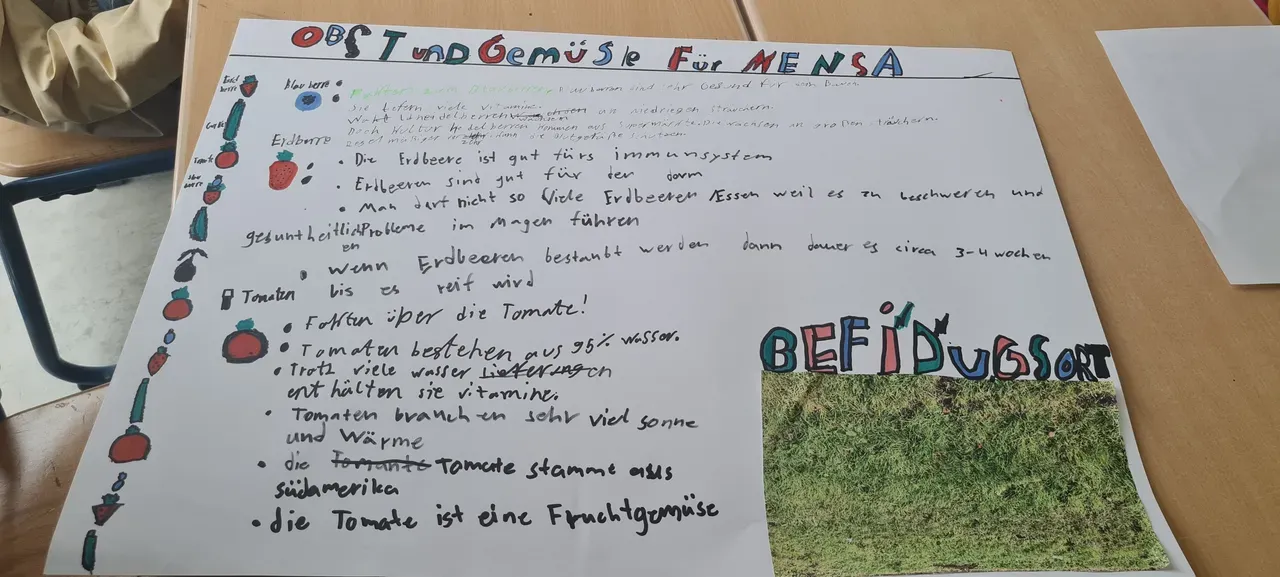 OBST und Gemüsle Für MENSA
Erd
berre
Gurke
Tomate
Blau
berre
Blau berre
sind sehr Gesund für
Sie liefern viele Vitamine.
an niedriegen sträuchern.
Doch Kultur heidelberren kommen aus Supermärkte. Die wachsen an großen sträuchern.
Erdberre
Die Erdbeere ist gut fürs immunsystem
Erdbeeren sind gut für der darm
Man darf nicht so viele Erdbeeren Essen weil es zu beschweren und
gesuntheitlichen Probleme im Magen führen
wenn Erdbeeren bestaubt werden dann dauer es circa 3-4 wochen
bis es reif wird
Tomaten
Fakten über die Tomate!
Tomaten bestehen aus 95% wasser.
Trotz viele wasser
ent hälten sie vitamine.
Tomaten brauchen sehr viel sonne
und Wärme
die Tomate stamme aus
südamerika
die Tomate ist eine Fruchtgemüse
BEFiDUGSORT